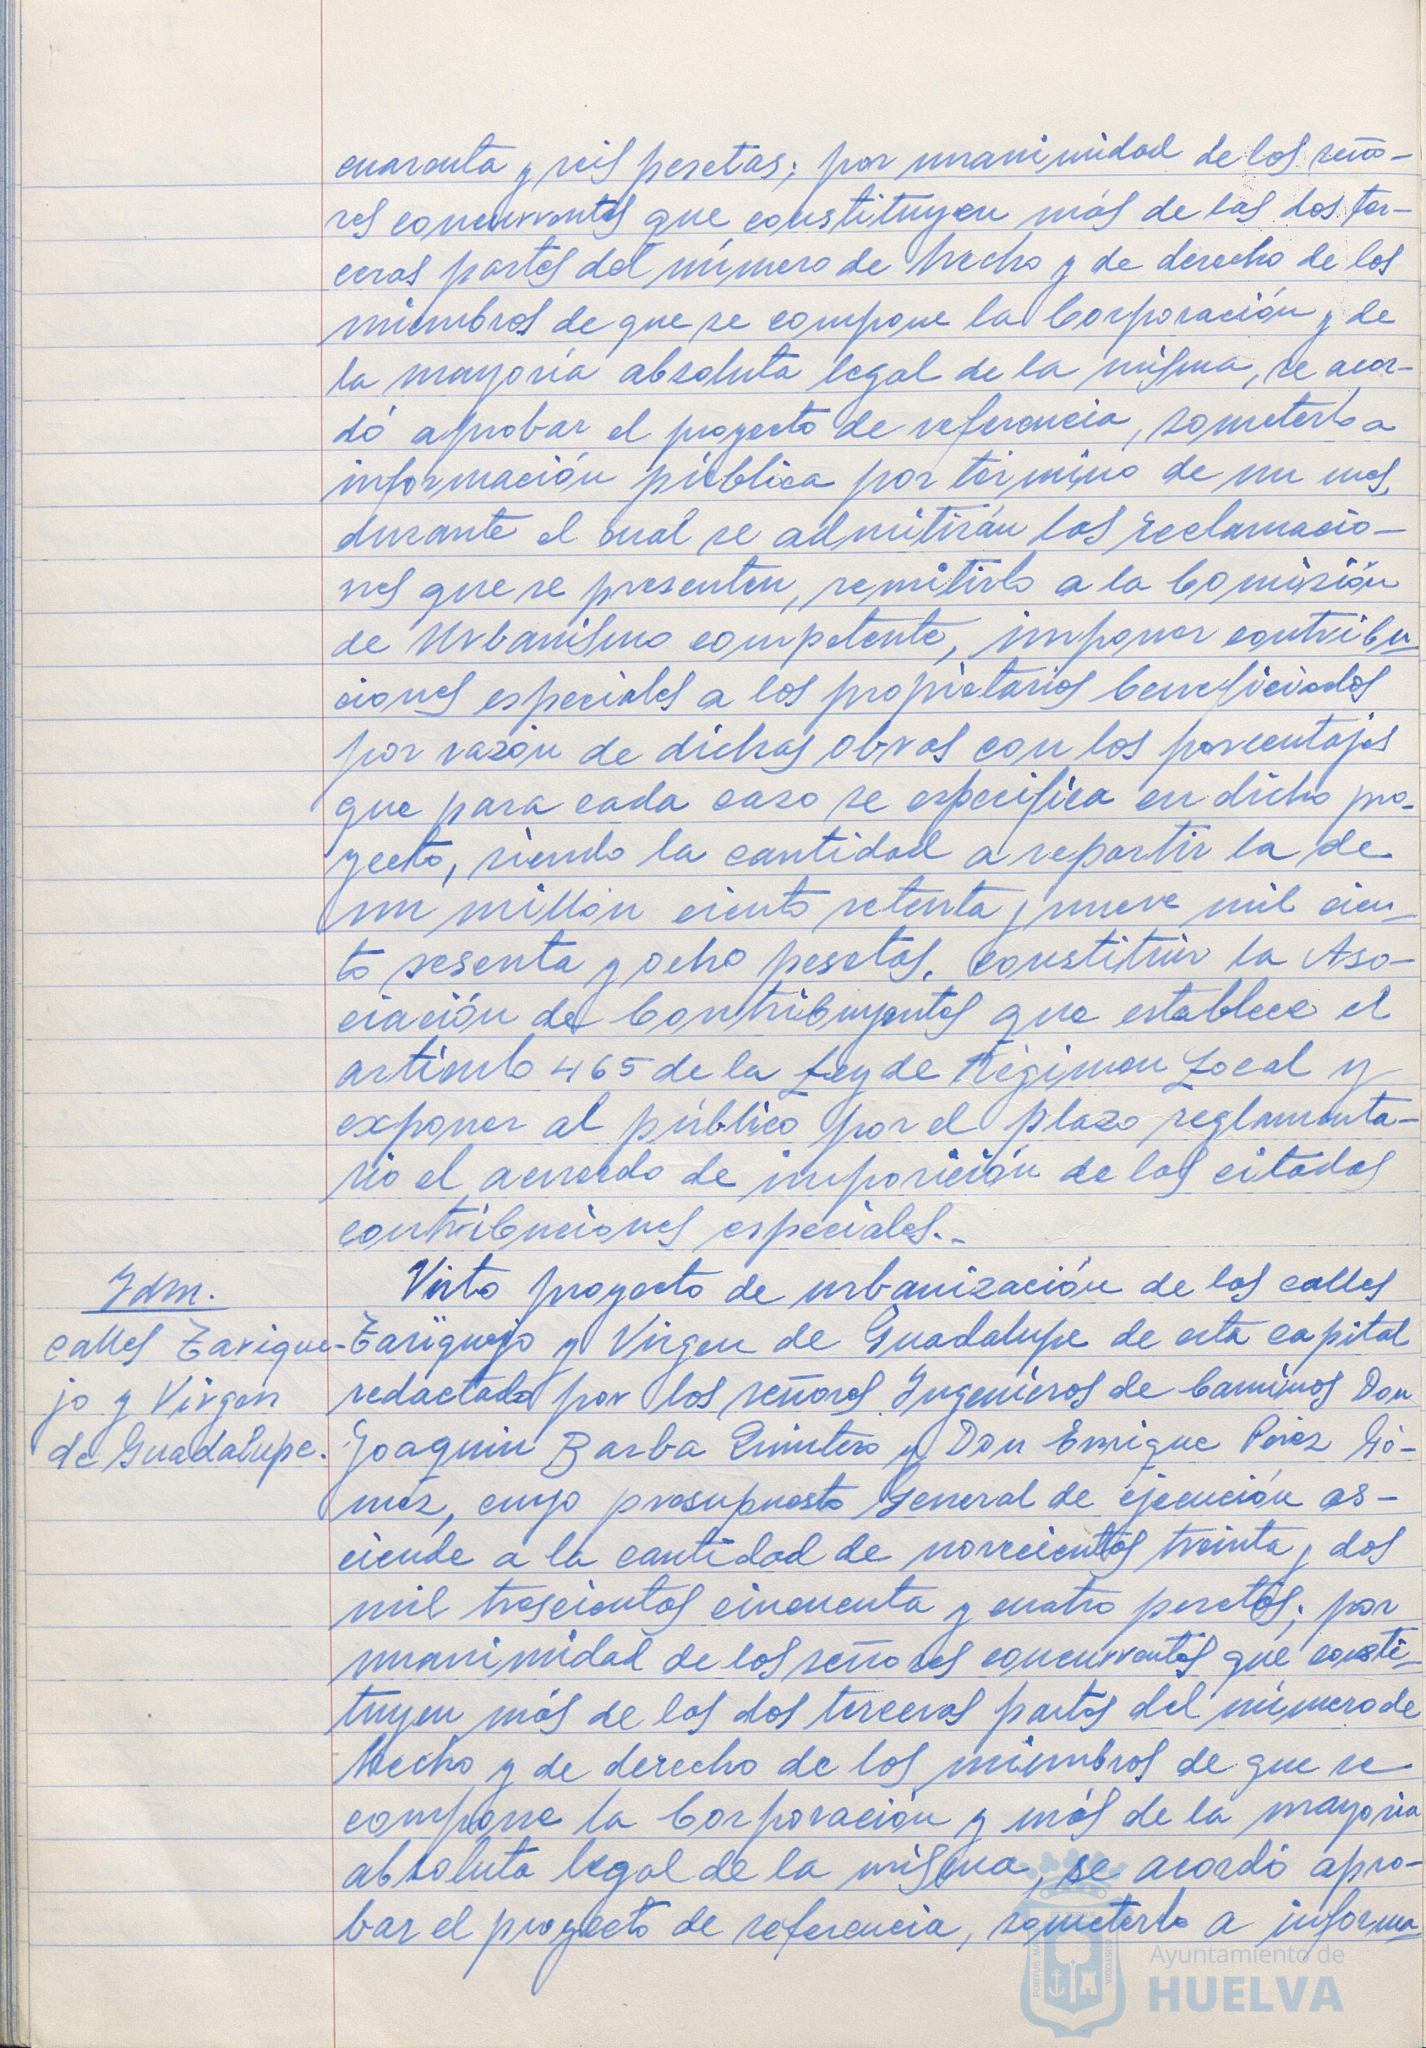 cuaronta y seis pesetas; por unanimidad de los seño-
res concurrentes que constituyen más de las dos ter-
ceras partes del número de hecho y de derecho de los
miembros de que se compone la Corporación y de
la mayoría absoluta legal de la misma, se acor-
dó aprobar el proyecto de referencia, someterlo a
información pública por término de un mes,
durante el cual se admitirán las reclamacio-
nes que se presenten, remitirlo a la Comisión
de Urbanismo competente, imponer contribu
ciones especiales a los propietarios beneficiados
por razón de dichas obras con los porcentajes
que para cada caso se especifica en dicho pro-
yecto, siendo la cantidad a repartir la de
un millón ciento setenta y nueve mil cien-
to sesenta y ocho pesetas, constituir la Aso-
ciación de Contribuyentes que establece el
artículo 465 de la Ley de Régimen Local y
exponer al público por el plazo reglamenta-
rio el acuerdo de imposición de las citadas
contribuciones especiales.-
Idm.
calles Zarigue-
jo y Virgen
de Guadalupe.
Visto proyecto de urbanización de las calles
Zariguejo y Virgen de Guadalupe de esta capital
redactado por los señores Ingenieros de Caminos Don
Joaquin Barba Quintero y Don Enrique Pérez Gó-
mez, cuyo presupuesto General de ejecución as-
ciende a la cantidad de novecientas treinta y dos
mil trescientas cincuenta y cuatro pesetas; por
unanimidad de los señores concurrentes que consti-
tuyen más de las dos terceras partes del número de
hecho y de derecho de los miembros de que se
compone la Corporación y más de la mayoria
absoluta legal de la misma, se acordó apro-
bar el proyecto de referencia, someterlo a informa
Ayuntamiento de
HUELVA